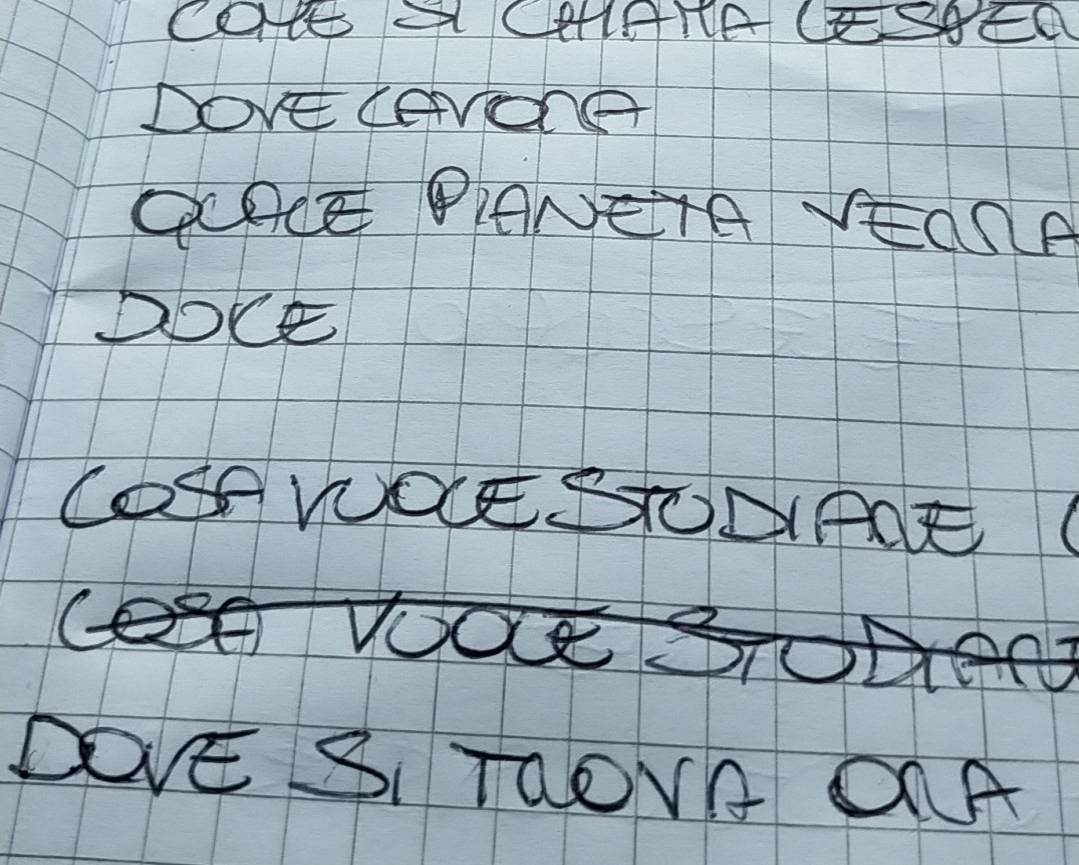 COME SI CHIAMA L'ESPER
DOVE LAVORA
QUALE PIANETA VERRA
DOLE
COSA VUOLE STUDIARE
COSA VUOLE STUDIARE
DOVE SI TROVA ORA